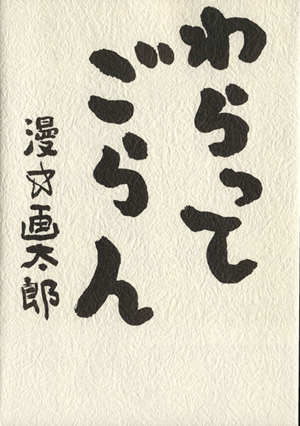 わらって
ごらん
漫☆画太郎